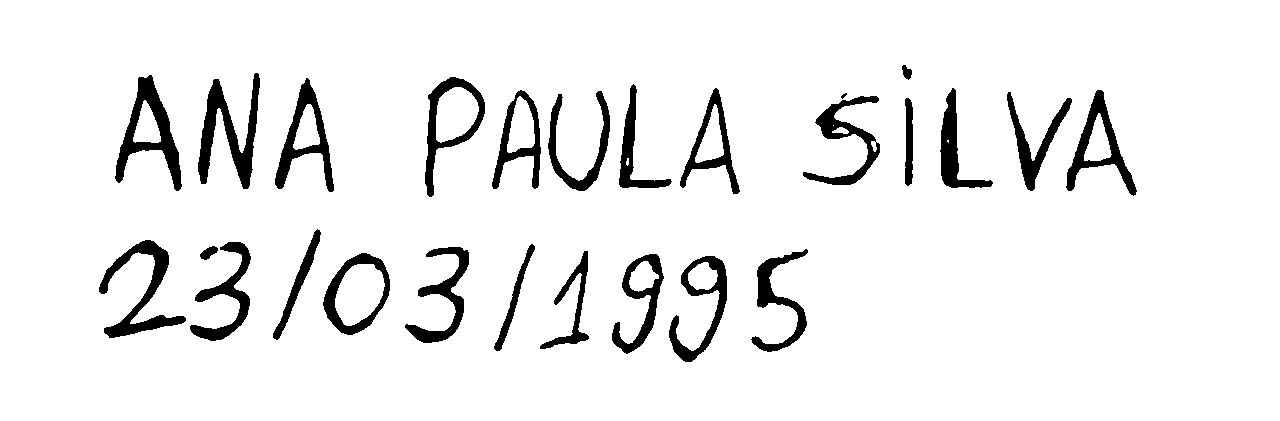 ANA PAULA SILVA
23/03/1995